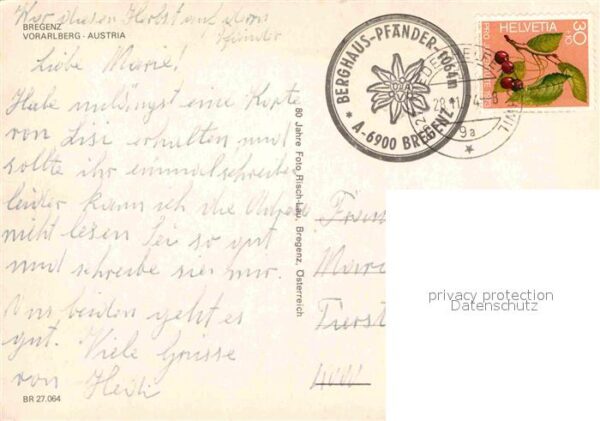 BREGENZ
VORARLBERG - AUSTRIA
War diesen Herbst auf dem
Pfänder
Liebe Marie!
Habe unlängst eine Karte
von Lisi erhalten und
sollte ihr einmal schreiben
leider kann ich die Adresse
nicht lesen Sei so gut
und schreibe sie mir.
Uns beiden geht es
gut. Viele Grüsse
von Heidi
BR 27.064
80 Jahre Foto Risch-Lau, Bregenz, Österreich
BERGHAUS-PFÄNDER-1064m
* A-6900 BREGENZ *
28.11.74
9a
HELVETIA
30
+10
PRO
Frau
Marie
Tierst
4000
privacy protection
Datenschutz